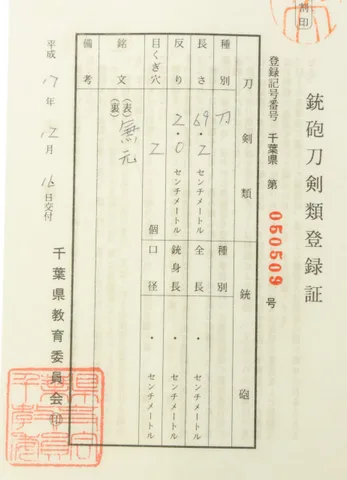 割印
銃砲刀剣類登録証
登録記号番号 千葉県 第 050509 号
刀剣類 銃砲
種別 刀 種別
長さ 69.2 センチメートル 全長 . センチメートル
反り 2.0 センチメートル 銃身長 . センチメートル
目くぎ穴 2 個 口径 . センチメートル
銘文 (表) (裏) 無
備考
平成 17年 12月 16日交付
千葉県教育委員会 印